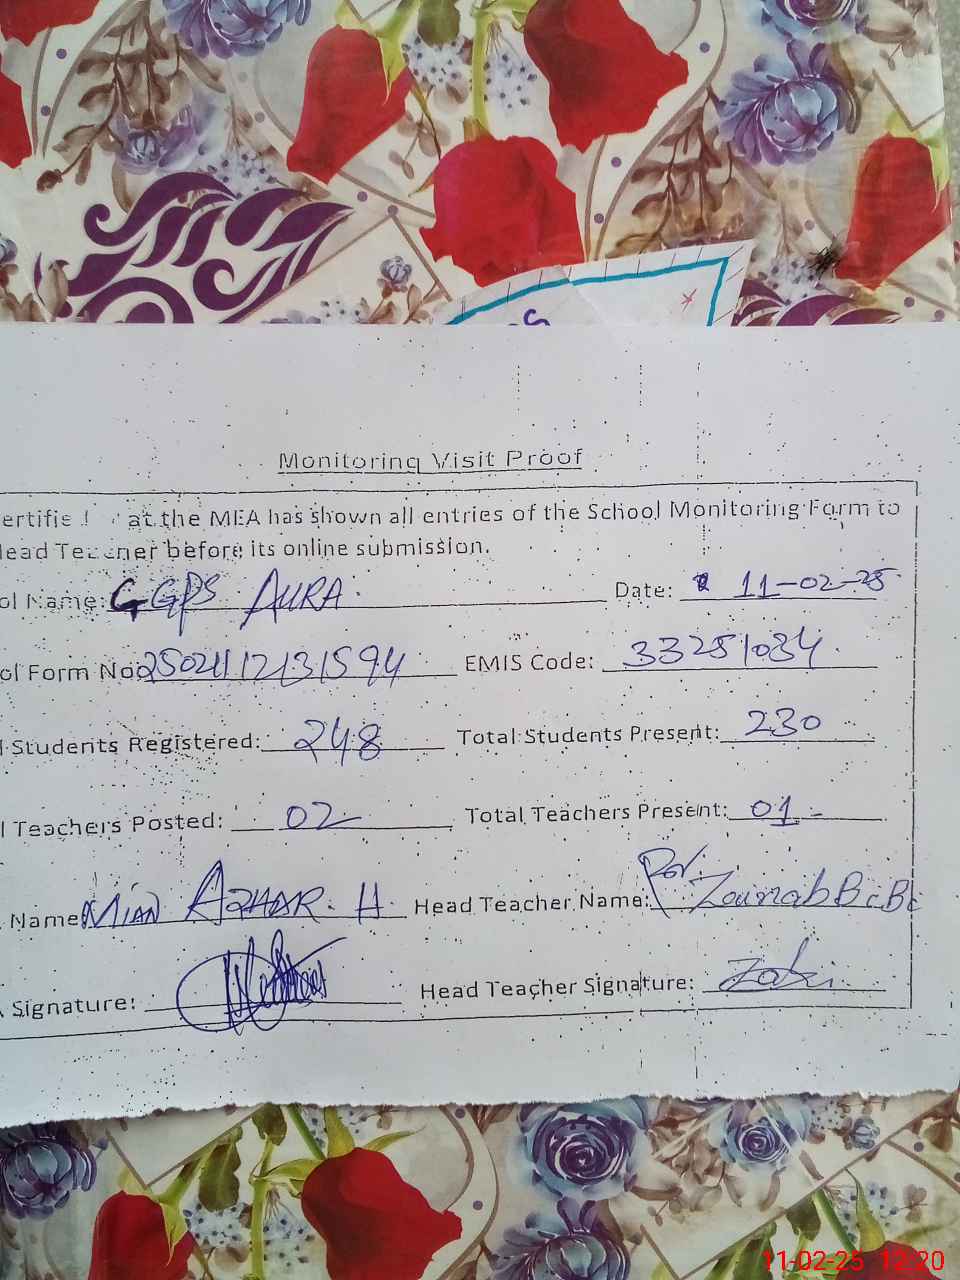 Monitoring Visit Proof
ertifie at the MEA has shown all entries of the School Monitoring Form to
lead Teacher before its online submission.
ol Name: GGPS AURA. Date: 11-02-25.
ol Form No: EMIS Code: 33251034.
l Students Registered: 248 Total Students Present: 230
l Teachers Posted: 02 Total Teachers Present: 01
Name: MIAN AZHAR. H. Head Teacher Name: Zainab
Signature: Head Teacher Signature:
11-02-25 12:20